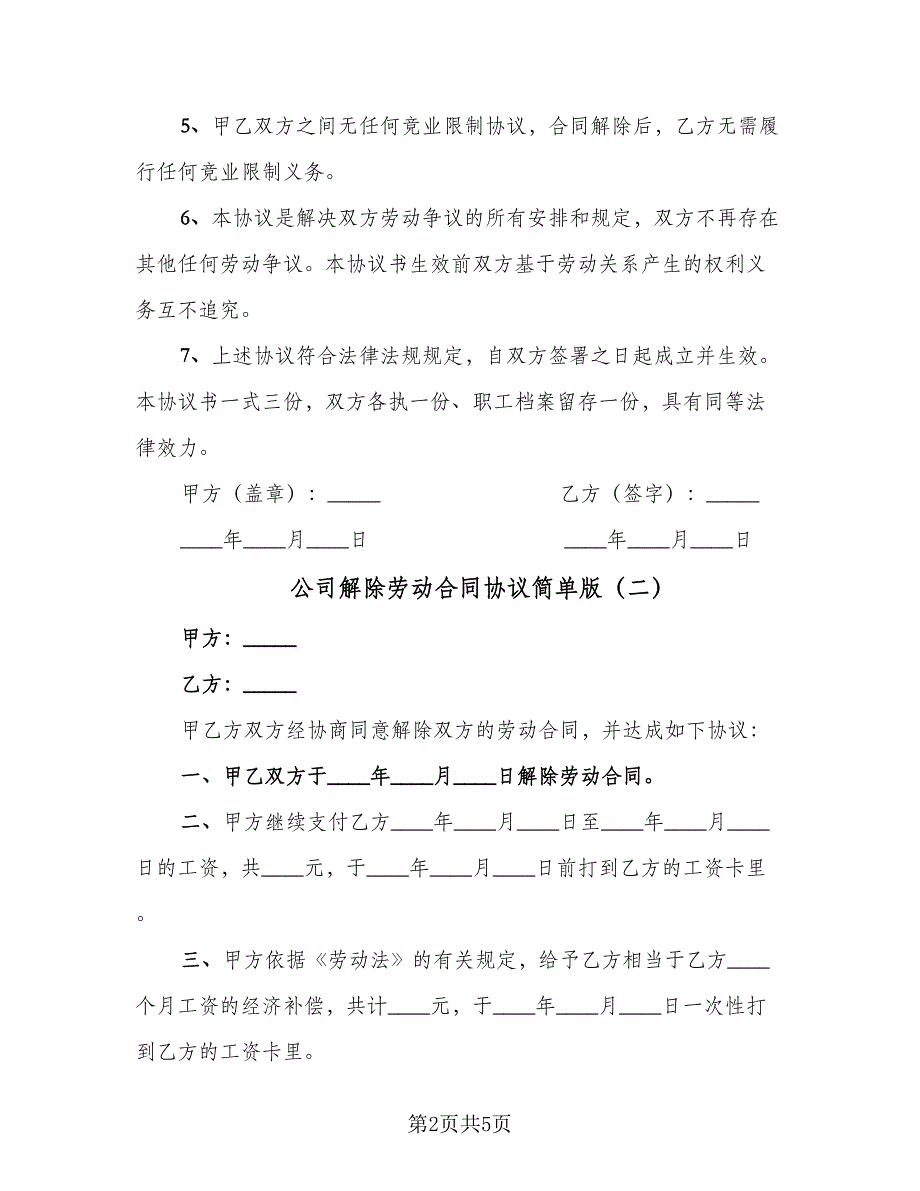 5、甲乙双方之间无任何竞业限制协议，合同解除后，乙方无需履
行任何竞业限制义务。
6、本协议是解决双方劳动争议的所有安排和规定，双方不再存在
其他任何劳动争议。本协议书生效前双方基于劳动关系产生的权利义
务互不追究。
7、上述协议符合法律法规规定，自双方签署之日起成立并生效。
本协议书一式三份，双方各执一份、职工档案留存一份，具有同等法
律效力。
甲方（盖章）：_____ 乙方（签字）：_____
____年____月____日 ____年____月____日
公司解除劳动合同协议简单版（二）
甲方：_____
乙方：_____
甲乙方双方经协商同意解除双方的劳动合同，并达成如下协议：
一、甲乙双方于____年____月____日解除劳动合同。
二、甲方继续支付乙方____年____月____日至____年____月____
日的工资，共____元，于____年____月____日前打到乙方的工资卡里
。
三、甲方依据《劳动法》的有关规定，给予乙方相当于乙方____
个月工资的经济补偿，共计____元，于____年____月____日一次性打
到乙方的工资卡里。
第2页共5页